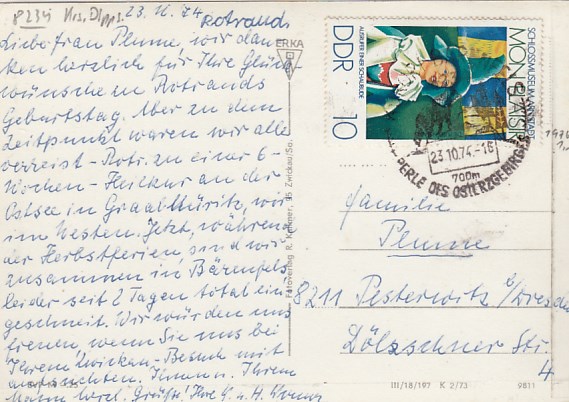 8234 Krs. Dipps. 23.10.74
Rotrauds
Liebe Frau Plume, wir dan-
ken herzlich für Ihre Glück-
wünsche zu Rotrauds
Geburtstag. Aber zu dem
Zeitpunkt waren wir alle
verreist - Rotr. zu einer 6-
Wochen-Heilkur an der
Ostsee in Graal-Müritz, wir
im Westen. Jetzt, während
der Herbstferien, sind wir
zusammen in Bärenfels
leider seit 2 Tagen total ein-
geschneit. Wir würden uns
freuen, wenn Sie uns bei
Ihrem Zwickau-Besuch mit
aufsuchten. Ihnen u. Ihrem
Mann herzl. Grüße! Ihre
ERKA
Fotoverlag R. Kallmer, 95 Zwickau/Sa.
SCHLOSSMUSEUM ARNSTADT
MON PLAISIR
AUSRUFER EINER SCHAUBUDE
DDR 10
23.10.74.-16
700m
PERLE DES OSTERZGEBIRGES
Familie
Plume
8211 Pesterwitz b/Dresden
Dölzschner Str.
4
III/18/197 K 2/73
9811